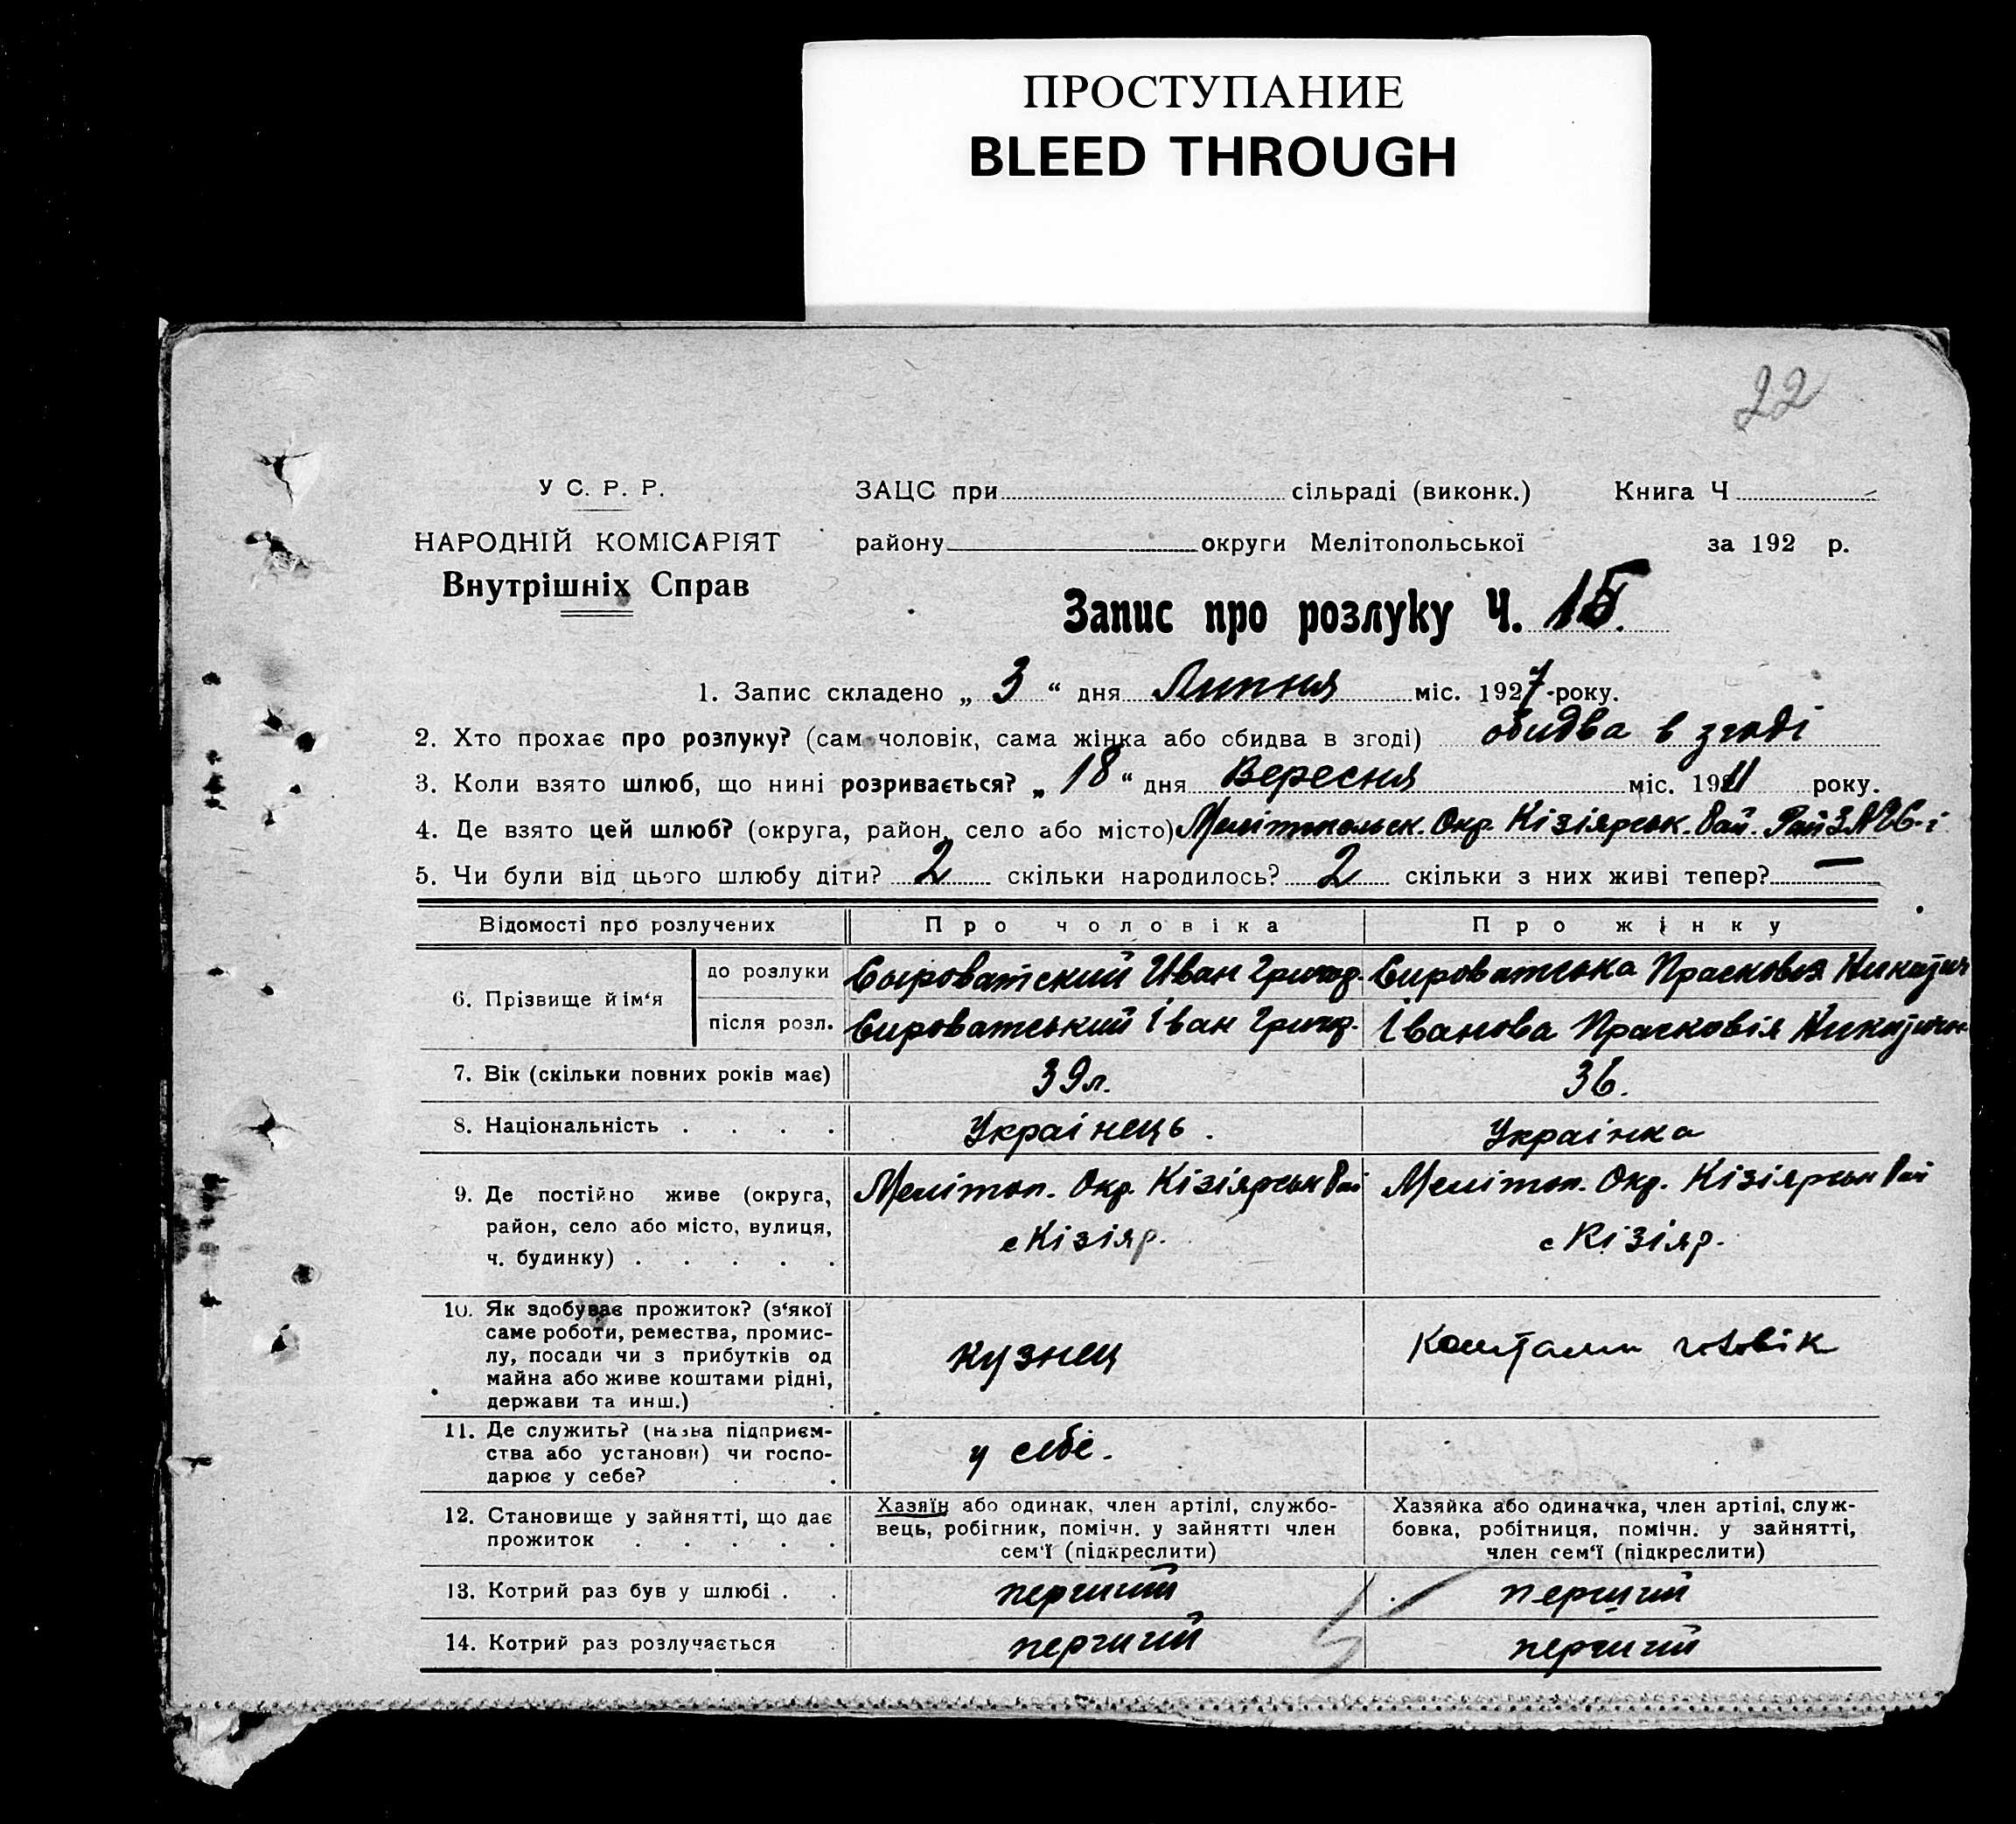 ПРОСТУПАНИЕ
BLEED THROUGH
22
У С. Р. Р.
НАРОДНІЙ КОМІСАРІЯТ
Внутрішніх Справ
ЗАЦС при сільраді (виконк.) Книга Ч
району округи Мелітопольської за 192 р.
Запис про розлуку Ч. 15.
1. Запис складено „ 3 “ дня Липня міс. 1927-року.
2. Хто прохає про розлуку? (сам чоловік, сама жінка або сбидва в згоді) обидва в згоді
3. Коли взято шлюб, що нині розривається? „ 18 “ дня Вересня міс. 1911 року.
4. Де взято цей шлюб? (округа, район, село або місто) Мелітопольск. Окр. Кізіярськ. Рай.
5. Чи були від цього шлюбу діти? 2 скільки народилось? 2 скільки з них живі тепер? —
Відомості про розлучених Про чоловіка Про жінку
6. Прізвище й ім‘я
до розлуки Сыроватский Иван Григор. Сироватська Прасковія
після розл. Сироватський Іван Григор. Іванова Прасковія
7. Вік (скільки повних років має) 39 л. 36.
8. Національність . . . . Украінець. Украінка
9. Де постійно живе (округа, район, село або місто, вулиця, ч. будинку) . . . . .
Меліто‌п. Окр. Кізіярськ Рай
с Кізіяр.
Мелітоп. Окр. Кізіярськ Рай
с Кізіяр.
10. Як здобуває прожиток? (з‘якої
саме роботи, ремества, промис-
лу, посади чи з прибутків од
майна або живе коштами рідні,
держави та инш.)
кузнец
Коштами
11. Де служить? (назва підприєм-
ства або установи) чи госпо-
дарює у себе? . .
у себе.
12. Становище у зайнятті, що дає
прожиток . . . . .
Хазяїн або одинак, член артілі, службо-
вець, робігник, помічн. у зайнятті член
сем‘ї (підкреслити)
Хазяйка або одиначка, член артілі, служ-
бовка, робітниця, помічн. у зайнятті,
член сем‘ї (підкреслити)
13. Котрий раз був у шлюбі . . перший перший
14. Котрий раз розлучається перший перший